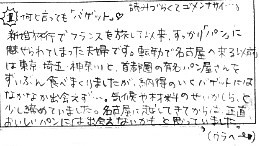 読みづらくてゴメンナサイ…
①何と言っても「バゲット」♡
新婚旅行でフランスを旅して以来、すっかり「パン」に
魅せられてしまった夫婦です。転勤で名古屋へ来る以前
は東京・埼玉・神奈川と、首都圏の有名パン屋さんで
ずいぶん食べまくりましたが、納得のいくバゲットには
なかなか出会えず…。気候や材料のせいかしら、と
少し諦めていましたら名古屋に越してきてからは、正直
おいしいパンには出会えないかも と思っていました。
(ウラへ